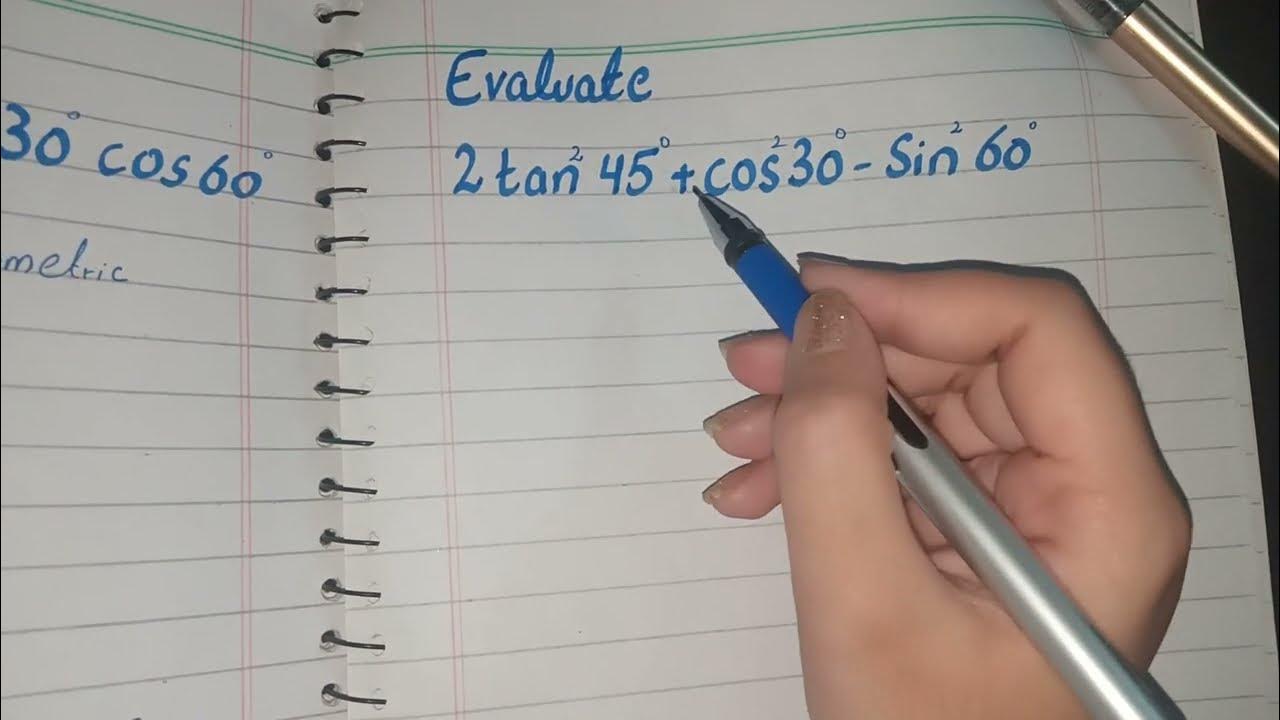 30° cos60°
metric
Evaluate
2 tan² 45° + cos² 30° - Sin² 60°